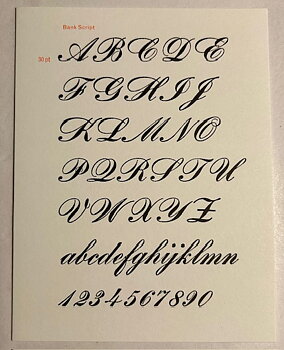 Bank Script
30 pt
ABCDE
FGHIJ
KLMNO
PQRSTU
VWXYZ
abcdefghijklmn
1234567890